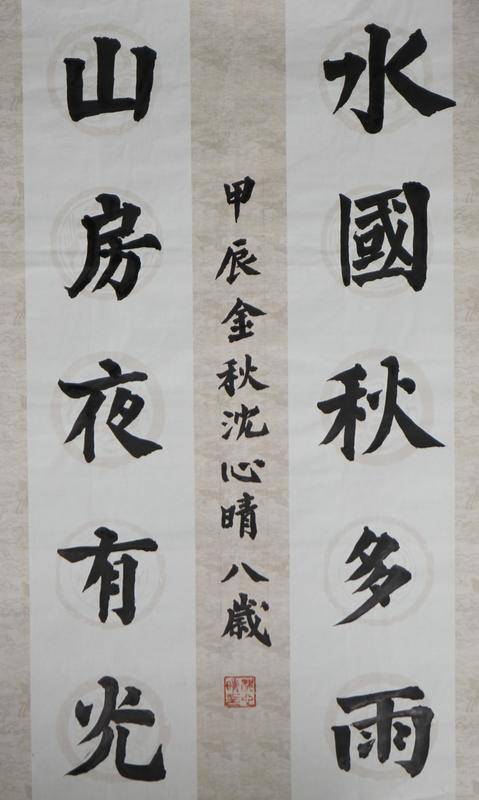 水國秋多雨
山房夜有光
甲辰金秋沈心晴八歲